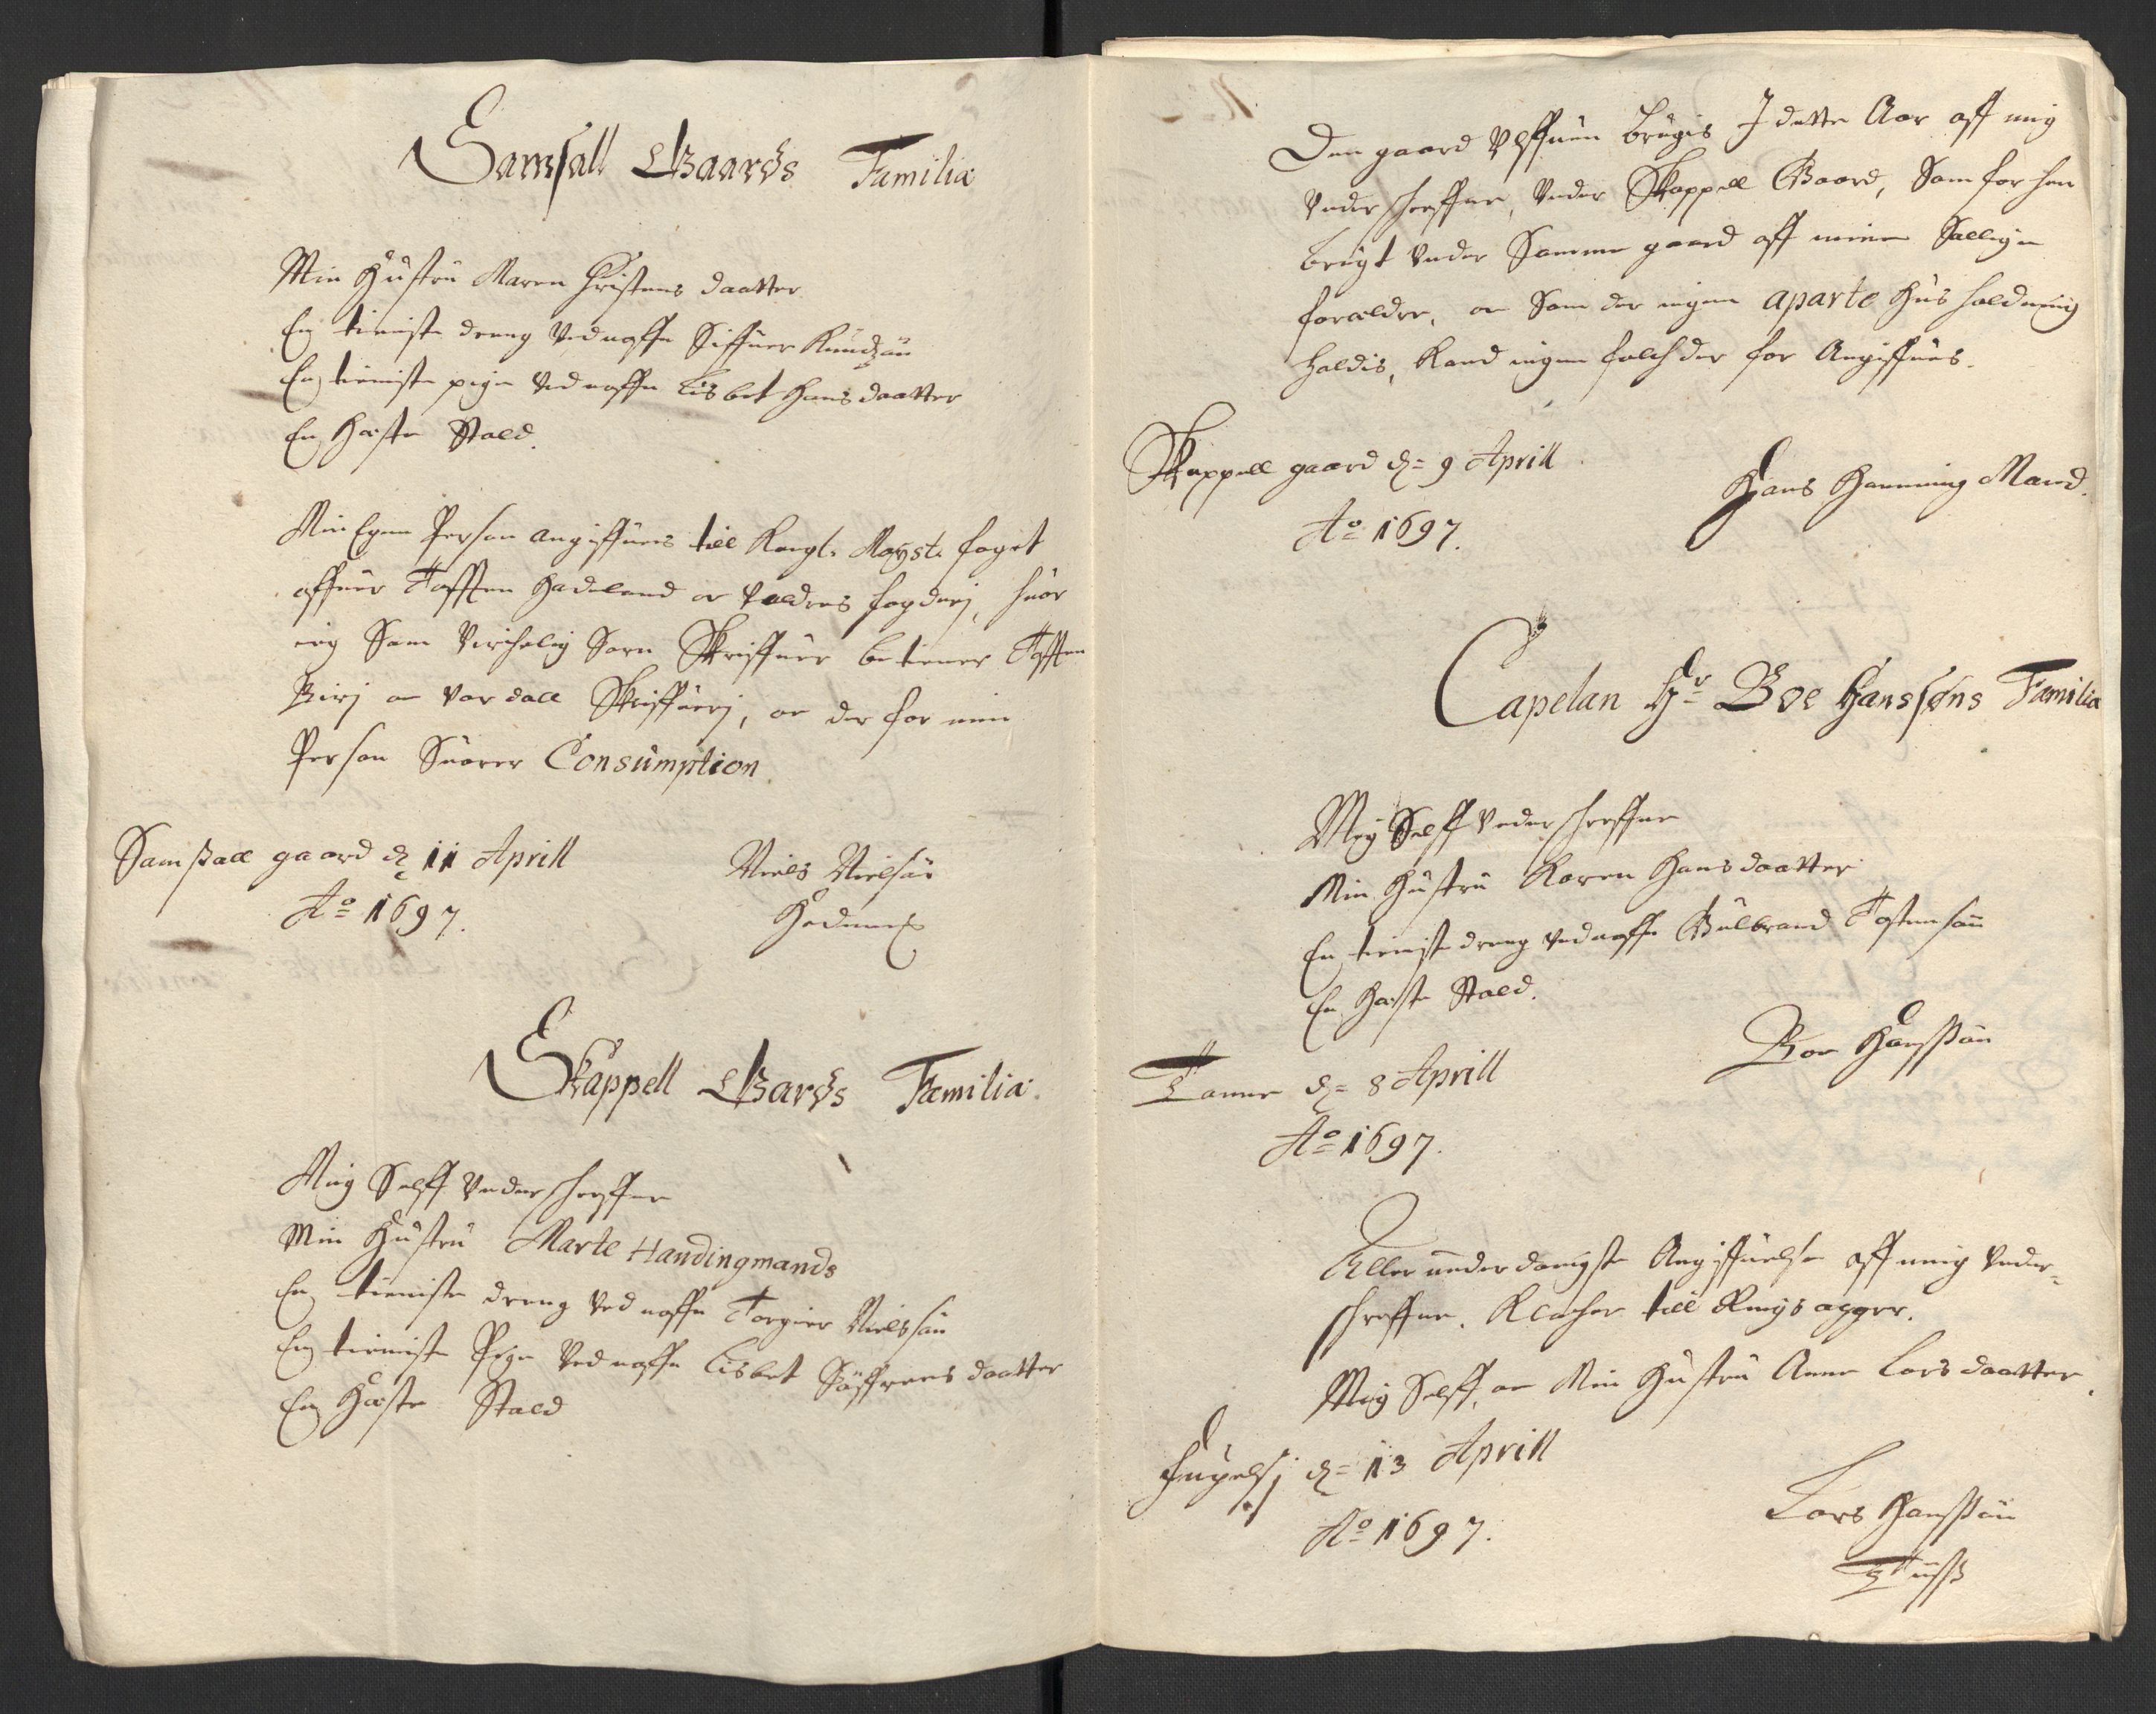 Samsall Gaards Familia
Min Hustru Maren Christens daatter
En tieniste dreng Ved naffn Siffuer Knudsøn
En tieniste pige Ved naffn Lisbet Hans daatter
En Heste Stald.
Min Egen Person angiffues till Kongl. Mayst. foget
offuer Tofften Hadeland oc Valdres fogderj, huor
ieg Som Virchelig Sorn Skriffuer betiener Tofften
Birj oc Vardall Skriffuerj, oc der for min
Person Suarer Consumption
Samsall gaard d. 11 Aprill
Ao 1697.
Niels Nielsøn
Skappell Gaards Familia.
Mig Selff Vnderschreffne
Min Hustru Marte Handingmands
En tieniste dreng Ved naffn Torgier Nielssøn
En tieniste Pige Ved naffn Lisbet Søffrens daatter
En Heste Stald
Den gaard Ulffuen brugis J dette Aar aff mig
Vnderschreffne, Vnder Skappell Gaard, Som for hen
brugt Vnder Samme gaard aff mine Sallige
forældre, oc Som der ingen aparte Huus holdning
holdis, Kand ingen folch der for Angiffues.
Skappell gaard d. 9 Aprill
Ao 1697.
Hans Hanning Mand.
Capelan Hr Boe Hanssøns Familia
Mig Selff Vnderschreffne
Min Hustru Karen Hans daatter
En tieniste dreng Ved naffn Gulbrand Tostensøn
En Heste Stald.
Boe Hanssøn
d. 8 Aprill
Ao 1697.
Aller underdanigste Angiffuelse aff mig Vnder-
schreffne, Klocher till Ringsager.
Mig Selff, oc Min Hustru Anne Lars daatter.
d. 13 Aprill
Ao 1697.
Lars Hanssøn